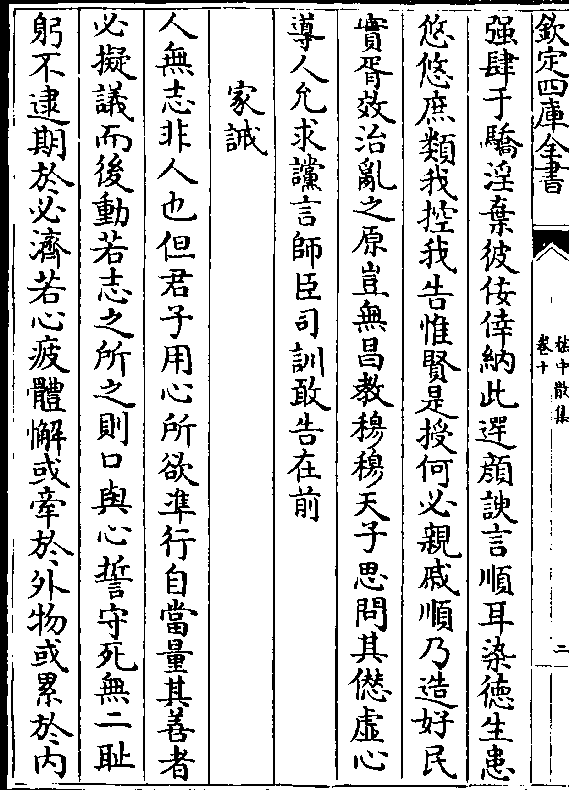 欽定四庫全書
嵇中散集
卷十
二
强肆于驕淫棄彼佞倖納此遻顔諛言順耳染徳生患
悠悠庶類我控我告惟賢是授何必親戚順乃造好民
實胥效治亂之原豈無昌教穆穆天子思問其𠎝虛心
導人允求讜言師臣司訓敢告在前
家誡
人無志非人也但君子用心所欲凖行自當量其善者
必擬議而後動若志之所之則口與心誓守死無二耻
躬不逮期於必濟若心疲體懈或牽於外物或累於内